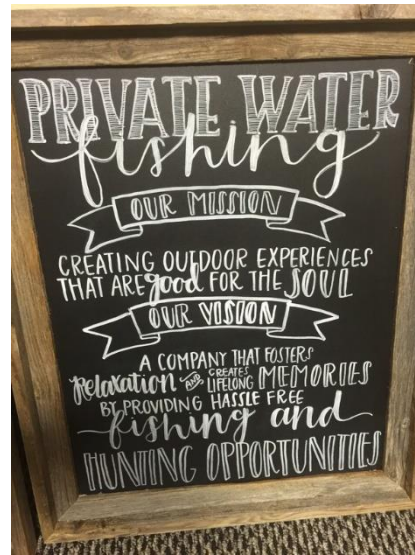 PRIVATE WATER
fishing
OUR MISSION
CREATING OUTDOOR EXPERIENCES
THAT ARE good FOR THE SOUL
OUR VISION
A COMPANY THAT FOSTERS
relaxation AND CREATES LIFELONG MEMORIES
BY PROVIDING HASSLE FREE
fishing and
HUNTING OPPORTUNITIES